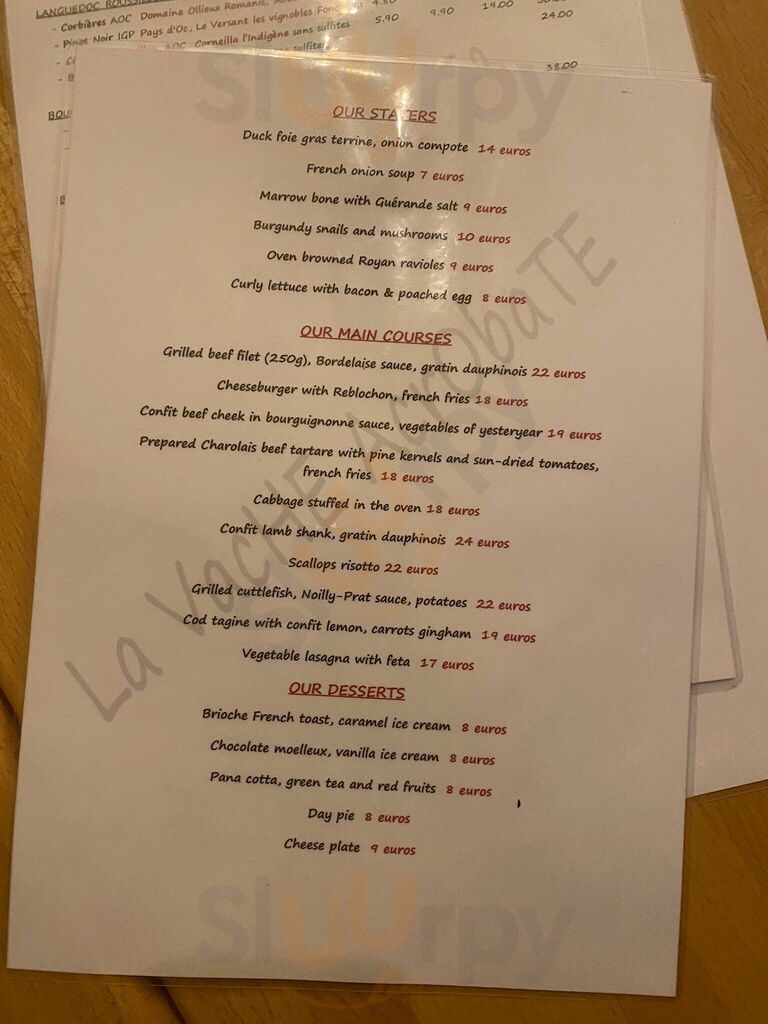 LANGUEDOC
- Corbières AOC Domaine Ollieux Romanis,
- Pinot Noir IGP Pays d'Oc, Le Versant les vignobles 5.90 9.90 19.00
AOC Corneilla l'Indigène sans sulfites 24.00
38.00
BOU
Sluurpy
OUR STATERS
Duck foie gras terrine, onion compote 14 euros
French onion soup 7 euros
Marrow bone with Guérande salt 9 euros
Burgundy snails and mushrooms 10 euros
Oven browned Royan ravioles 9 euros
Curly lettuce with bacon & poached egg 8 euros
OUR MAIN COURSES
Grilled beef filet (250g), Bordelaise sauce, gratin dauphinois 22 euros
Cheeseburger with Reblochon, french fries 18 euros
Confit beef cheek in bourguignonne sauce, vegetables of yesteryear 19 euros
Prepared Charolais beef tartare with pine kernels and sun-dried tomatoes,
french fries 18 euros
Cabbage stuffed in the oven 18 euros
Confit lamb shank, gratin dauphinois 24 euros
Scallops risotto 22 euros
Grilled cuttlefish, Noilly-Prat sauce, potatoes 22 euros
Cod tagine with confit lemon, carrots gingham 19 euros
Vegetable lasagna with feta 17 euros
OUR DESSERTS
Brioche French toast, caramel ice cream 8 euros
Chocolate moelleux, vanilla ice cream 8 euros
Pana cotta, green tea and red fruits 8 euros
Day pie 8 euros
Cheese plate 9 euros
La VacHE AcrObaTE
Sluurpy